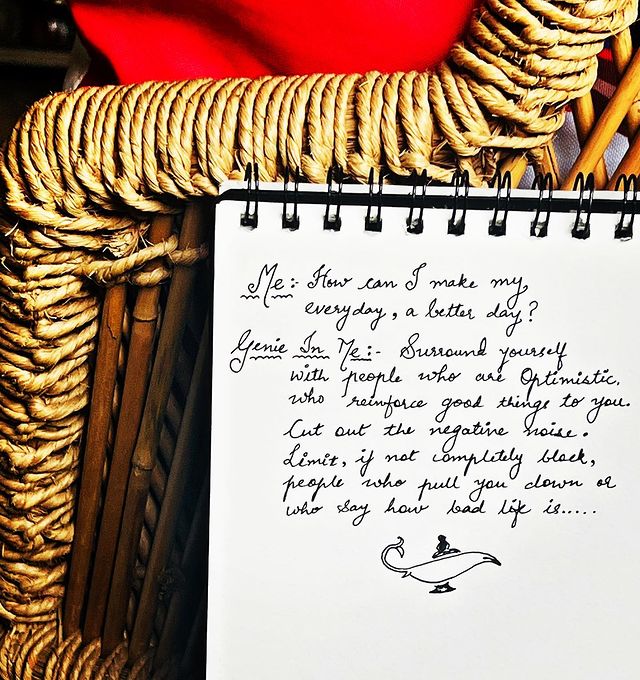 Me:- How can I make my
everyday, a better day?
Genie In Me:- Surround yourself
with people who are Optimistic,
who reinforce good things to you.
Cut out the negative noise.
Limit, if not completely block,
people who pull you down or
who say how bad life is.....